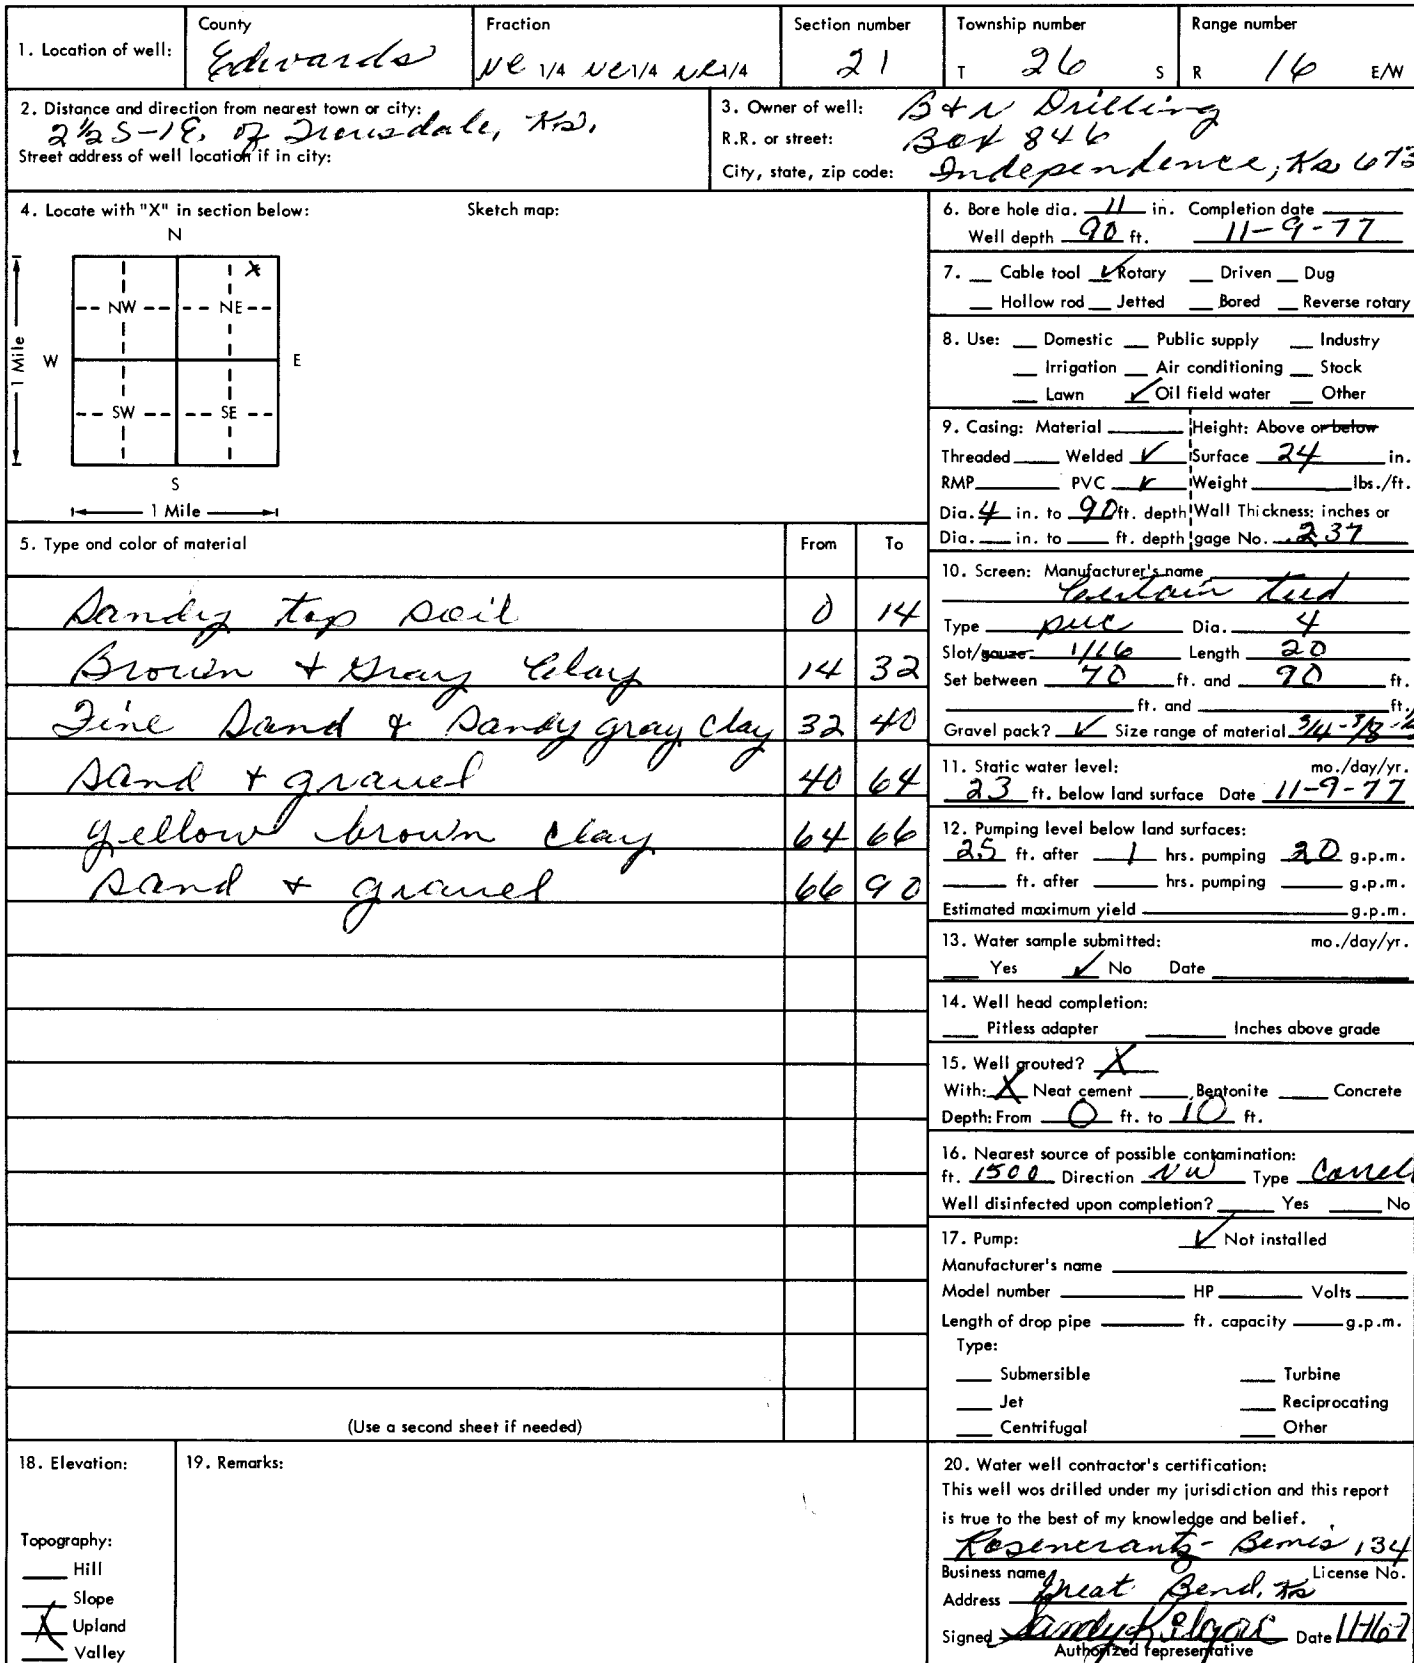 1. Location of well: County Edwards Fraction NE 1/4 NE 1/4 NE 1/4 Section number 21 Township number T 26 S Range number R 16 E/W
2. Distance and direction from nearest town or city:
2½ S-1E. of Trousdale, Ks.
Street address of well location if in city:
3. Owner of well: B+N Drilling
R.R. or street: Box 846
City, state, zip code: Independence, Ks 673
4. Locate with "X" in section below: Sketch map:
N
X
NW NE
W E
1 Mile
SW SE
S
1 Mile
5. Type and color of material From To
Sandy top soil 0 14
Brown + Gray Clay 14 32
Fine Sand & Sandy gray clay 32 40
Sand + gravel 40 64
yellow brown clay 64 66
Sand + gravel 66 90
(Use a second sheet if needed)
6. Bore hole dia. 11 in. Completion date
Well depth 90 ft. 11-9-77
7. Cable tool ✓ Rotary Driven Dug
Hollow rod Jetted Bored Reverse rotary
8. Use: Domestic Public supply Industry
Irrigation Air conditioning Stock
Lawn ✓ Oil field water Other
9. Casing: Material Height: Above or below
Threaded Welded ✓ Surface 24 in.
RMP PVC ✓ Weight lbs./ft.
Dia. 4 in. to 90 ft. depth Wall Thickness: inches or
Dia. in. to ft. depth gage No. .237
10. Screen: Manufacturer's name
Certain teed
Type pvc Dia. 4
Slot/gauze 1/16 Length 20
Set between 70 ft. and 90 ft.
ft. and ft.
Gravel pack? ✓ Size range of material 3/4-3/8
11. Static water level: mo./day/yr.
23 ft. below land surface Date 11-9-77
12. Pumping level below land surfaces:
25 ft. after 1 hrs. pumping 20 g.p.m.
ft. after hrs. pumping g.p.m.
Estimated maximum yield g.p.m.
13. Water sample submitted: mo./day/yr.
Yes ✓ No Date
14. Well head completion:
Pitless adapter Inches above grade
15. Well grouted? X
With: X Neat cement Bentonite Concrete
Depth: From 0 ft. to 10 ft.
16. Nearest source of possible contamination:
ft. 1500 Direction NW Type
Well disinfected upon completion? Yes No
17. Pump: ✓ Not installed
Manufacturer's name
Model number HP Volts
Length of drop pipe ft. capacity g.p.m.
Type:
Submersible Turbine
Jet Reciprocating
Centrifugal Other
18. Elevation:
Topography:
Hill
Slope
X Upland
Valley
19. Remarks:
20. Water well contractor's certification:
This well was drilled under my jurisdiction and this report
is true to the best of my knowledge and belief.
Rosencrantz-Bemis 134
Business name License No.
Address Great Bend, Ks
Signed Sandy Kilgore Date 11-16-7
Authorized representative